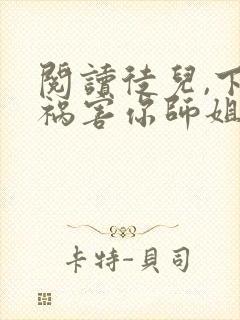 閱讀徒兒,下
禍害你師姐
卡特-貝司